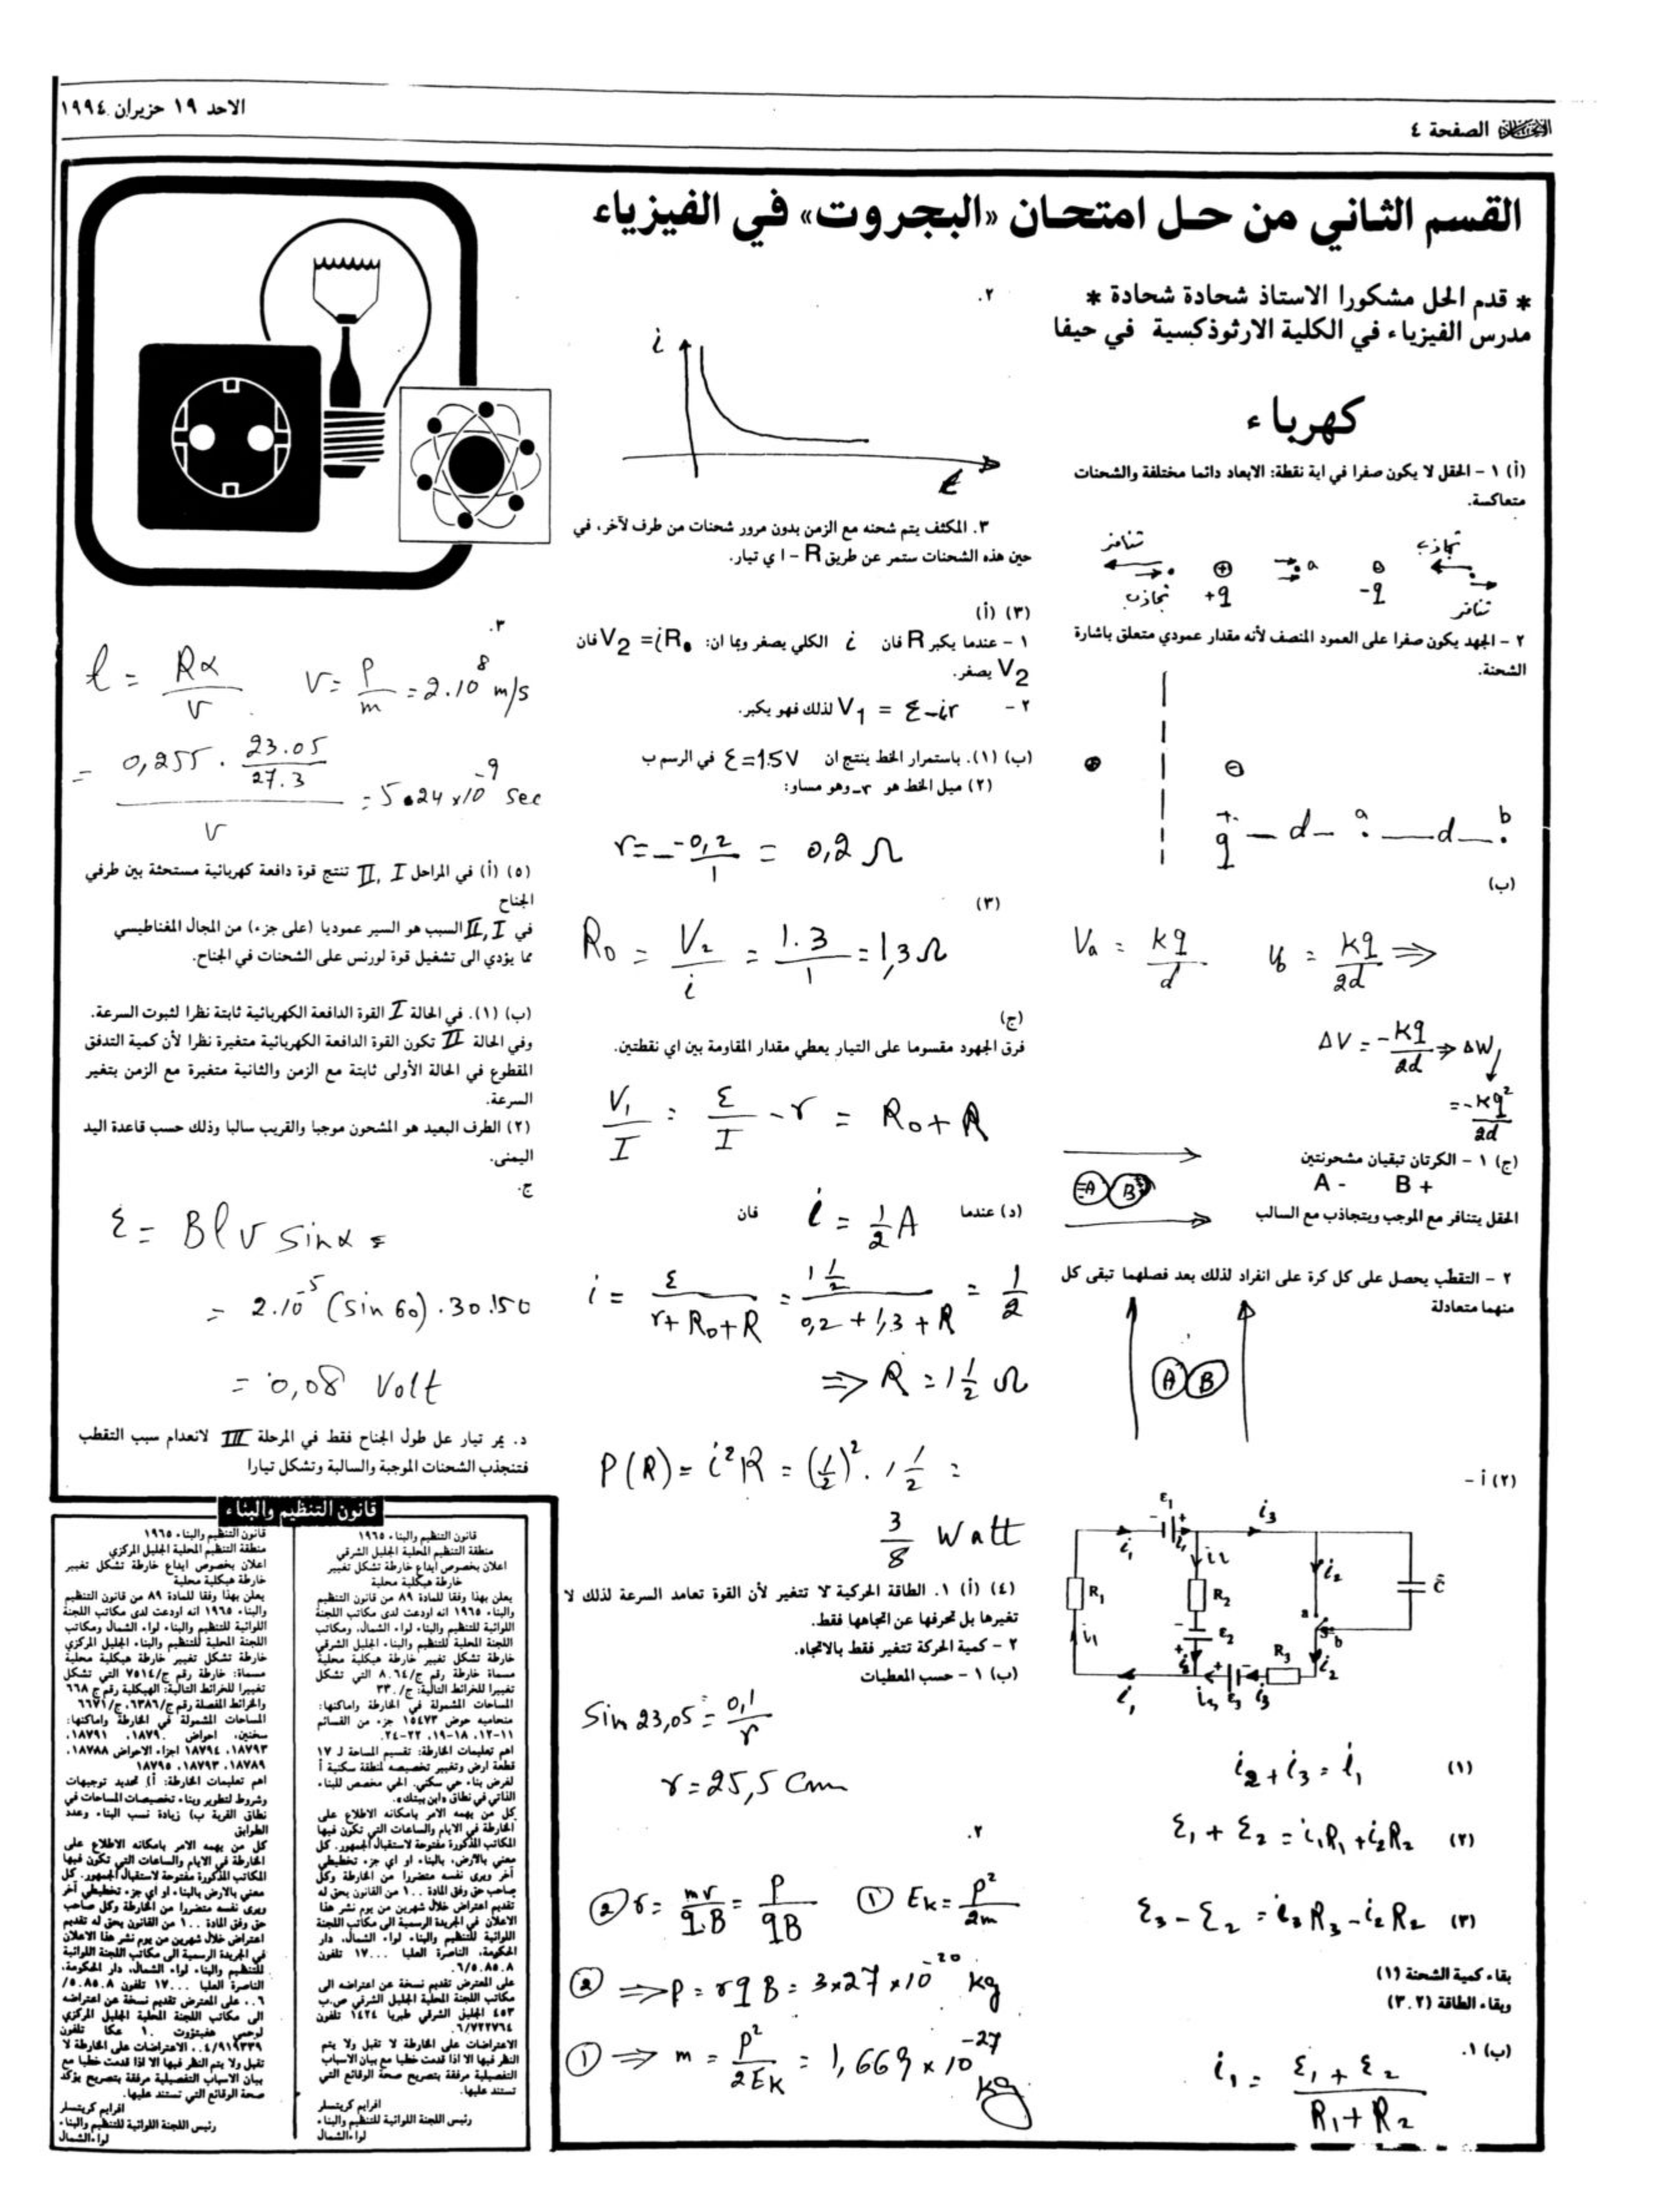 الاحد ١٩ حزيران ١٩٩٤
الصفحة ٤
القسم الثاني من حل امتحان «البجروت» في الفيزياء
* قدم الحل مشكورا الاستاذ شحادة شحادة *
مدرس الفيزياء في الكلية الارثوذكسية في حيفا
كهرباء
(أ) ١ - الحقل لا يكون صفرا في اية نقطة: الابعاد دائما مختلفة والشحنات
متعاكسة.
تنافر
تجاذب
a
تجاذب
+q
-q
تنافر
٢ - الجهد يكون صفرا على العمود المنصف لأنه مقدار عمودي متعلق باشارة
الشحنة.
q — d — a — d — b
(ب)
Va = kq/d
= kq/2d ⇒
ΔV = -kq/2d ⇒ ΔW
= -kq²/2d
(ج) ١ - الكرتان تبقيان مشحونتين
A - B +
A B
الحقل يتنافر مع الموجب ويتجاذب مع السالب
٢ - التقطّب يحصل على كل كرة على انفراد لذلك بعد فصلهما تبقى كل
منهما متعادلة
A B
(٢) أ -
ε1 i3
i1 i2
R1 R2 C
ε2 a b
R3
i1 ε3 i3 i2
(١) i2 + i3 = i1
(٢) ε1 + ε2 = i1R1 + i2R2
(٣) ε3 - ε2 = i3R3 - i2R2
بقاء كمية الشحنة (١)
وبقاء الطاقة (٢.٣)
(ب) ١.
i1 = (ε1 + ε2)/(R1 + R2)
٢.
i
t
٣. المكثف يتم شحنه مع الزمن بدون مرور شحنات من طرف لآخر، في
حين هذه الشحنات ستمر عن طريق R - اي تيار.
(٣) (أ)
١ - عندما يكبر R فان i الكلي يصغر وبما ان: V2 = iR0 فان
V2 يصغر.
٢ - V1 = ε-ir لذلك فهو يكبر.
(ب) (١). باستمرار الخط ينتج ان ε=1.5V في الرسم ب
(٢) ميل الخط هو r- وهو مساو:
r = - -0,2/1 = 0,2 Ω
(٣)
R0 = V2/i = 1.3/1 = 1,3 Ω
(ج)
فرق الجهود مقسوما على التيار يعطي مقدار المقاومة بين اي نقطتين.
V1/I = ε/I - r = R0 + R
(د) عندما i = 1/2 A فان
i = ε/(r + R0 + R) = 1 1/2/(0,2 + 1,3 + R) = 1/2
⇒ R = 1 1/2 Ω
P(R) = i²R = (1/2)² . 1 1/2 =
3/8 Watt
(٤) (أ) ١. الطاقة الحركية لا تتغير لأن القوة تعامد السرعة لذلك لا
تغيرها بل تحرفها عن اتجاهها فقط.
٢ - كمية الحركة تتغير فقط بالاتجاه.
(ب) ١ - حسب المعطيات
Sin 23,05 = 0,1/r
r = 25,5 Cm
٢.
② r = mv/q.B = P/qB ① Ek = P²/2m
② ⇒ P = rqB = 3x27x10^-20 kg
① ⇒ m = P²/2Ek = 1,669 x 10^-27 kg
٣.
t = Rα/v V = P/m = 2.10^8 m/s
= 0,255 . 23.05/27.3 / v = 5.24x10^-9 sec
(٥) (أ) في المراحل I ,II تنتج قوة دافعة كهربائية مستحثة بين طرفي
الجناح
في I ,II السبب هو السير عموديا (على جزء) من المجال المغناطيسي
مما يؤدي الى تشغيل قوة لورنس على الشحنات في الجناح.
(ب) (١). في الحالة I القوة الدافعة الكهربائية ثابتة نظرا لثبوت السرعة.
وفي الحالة II تكون القوة الدافعة الكهربائية متغيرة نظرا لأن كمية التدفق
المقطوع في الحالة الأولى ثابتة مع الزمن والثانية متغيرة مع الزمن بتغير
السرعة.
(٢) الطرف البعيد هو المشحون موجبا والقريب سالبا وذلك حسب قاعدة اليد
اليمنى.
ج.
ε = B l v sin α =
= 2.10^-5 (sin 60) . 30.150
= 0,08 Volt
د. يمر تيار عل طول الجناح فقط في المرحلة III لانعدام سبب التقطب
فتنجذب الشحنات الموجبة والسالبة وتشكل تيارا
قانون التنظيم والبناء
قانون التنظيم والبناء ١٩٦٥
منطقة التنظيم المحلية الجليل الشرقي
اعلان بخصوص ايداع خارطة تشكل تغيير
خارطة هيكلية محلية
يعلن بهذا وفقا للمادة ٨٩ من قانون التنظيم
والبناء ١٩٦٥ انه اودعت لدى مكاتب اللجنة
اللوائية للتنظيم والبناء لواء الشمال، ومكاتب
اللجنة المحلية للتنظيم والبناء الجليل الشرقي
خارطة تشكل تغيير خارطة هيكلية محلية
مسماة خارطة رقم ج/٨٠٦٤ التي تشكل
تغييرا للخرائط التالية: ج/٣٣٠
المساحات المشمولة في الخارطة واماكنها:
حوض ١٥٤٧٣ جزء من القسائم
١١-١٢، ١٨-١٩، ٢٢-٢٤.
اهم تعليمات الخارطة: تقسيم المساحة لـ ١٧
قطعة ارض وتغيير تخصيصه لمنطقة سكنية أ
لغرض بناء حي سكني. الحي مخصص للبناء
الذاتي في نطاق «ابن بيتك».
كل من يهمه الامر بامكانه الاطلاع على
الخارطة في الايام والساعات التي تكون فيها
المكاتب المذكورة مفتوحة لاستقبال الجمهور. كل
معني بالارض، بالبناء او اي جزء تخطيطي
آخر ويرى نفسه متضررا من الخارطة وكل
صاحب حق وفق المادة ١٠٠ من القانون يحق له
تقديم اعتراض خلال شهرين من يوم نشر هذا
الاعلان في الجريدة الرسمية الى مكاتب اللجنة
اللوائية للتنظيم والبناء لواء الشمال، دار
الحكومة، الناصرة العليا ١٧٠٠٠ تلفون
على المعترض تقديم نسخة عن اعتراضه الى
مكاتب اللجنة المحلية الجليل الشرقي ص.ب
٤٥٣ الجليل الشرقي طبريا ١٤٢٤ تلفون
الاعتراضات على الخارطة لا تقبل ولا يتم
النظر فيها الا اذا قدمت خطيا مع بيان الاسباب
التفصيلية مرفقة بتصريح صحة الوقائع التي
تستند عليها.
افرايم كريتسلر
رئيس اللجنة اللوائية للتنظيم والبناء
لواء الشمال
قانون التنظيم والبناء ١٩٦٥
منطقة التنظيم المحلية الجليل المركزي
اعلان بخصوص ايداع خارطة تشكل تغيير
خارطة هيكلية محلية
يعلن بهذا وفقا للمادة ٨٩ من قانون التنظيم
والبناء ١٩٦٥ انه اودعت لدى مكاتب اللجنة
اللوائية للتنظيم والبناء لواء الشمال ومكاتب
اللجنة المحلية للتنظيم والبناء الجليل المركزي
خارطة تشكل تغيير خارطة هيكلية محلية
مسماة: خارطة رقم ج/٧٥١٤ التي تشكل
تغييرا للخرائط التالية: الهيكلية رقم ج ٦٦٨
والخرائط المفصلة رقم ج/٦٣٨٦، ج/٦٦٧١
المساحات المشمولة في الخارطة واماكنها:
سخنين، احواض ١٨٧٩٠، ١٨٧٩١،
١٨٧٩٣، ١٨٧٩٤ اجزاء الاحواض ١٨٧٨٨،
١٨٧٨٩، ١٨٧٩٣، ١٨٧٩٥
اهم تعليمات الخارطة: أ) تحديد توجيهات
وشروط لتطوير وبناء تخصيصات المساحات في
نطاق القرية ب) زيادة نسب البناء وعدد
الطوابق
كل من يهمه الامر بامكانه الاطلاع على
الخارطة في الايام والساعات التي تكون فيها
المكاتب المذكورة مفتوحة لاستقبال الجمهور. كل
معني بالارض بالبناء او اي جزء تخطيطي آخر
ويرى نفسه متضررا من الخارطة وكل صاحب
حق وفق المادة ١٠٠ من القانون يحق له تقديم
اعتراض خلال شهرين من يوم نشر هذا الاعلان
في الجريدة الرسمية الى مكاتب اللجنة اللوائية
للتنظيم والبناء لواء الشمال، دار الحكومة،
الناصرة العليا ١٧٠٠٠ تلفون
على المعترض تقديم نسخة عن اعتراضه
الى مكاتب اللجنة المحلية الجليل المركزي
عكا تلفون
٠٤/٩١٩٣٣٩. الاعتراضات على الخارطة لا
تقبل ولا يتم النظر فيها الا اذا قدمت خطيا مع
بيان الاسباب التفصيلية مرفقة بتصريح يؤكد
صحة الوقائع التي تستند عليها.
افرايم كريتسلر
رئيس اللجنة اللوائية للتنظيم والبناء
لواء الشمال